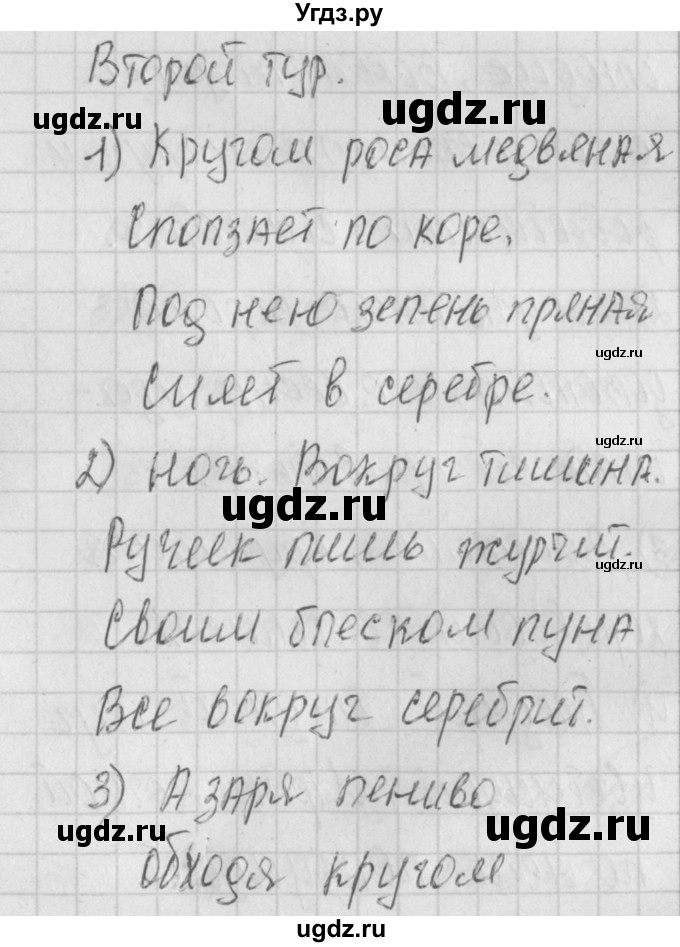 Угдз.ру
Второй тур.
ugdz.ru
ugdz.ru
1) Кругом роса медвяная
Сползает по коре,
Под нею зелень пряная
ugdz.ru
Сияет в серебре.
ugdz.ru
2) Ночь. Вокруг тишина.
ugdz.ru
Ручеек лишь журчит.
ugdz.ru
Своим блеском луна
Все вокруг серебрит.
3) А заря лениво
ugdz.ru
ugdz.ru
Обходя кругом
ugdz.ru